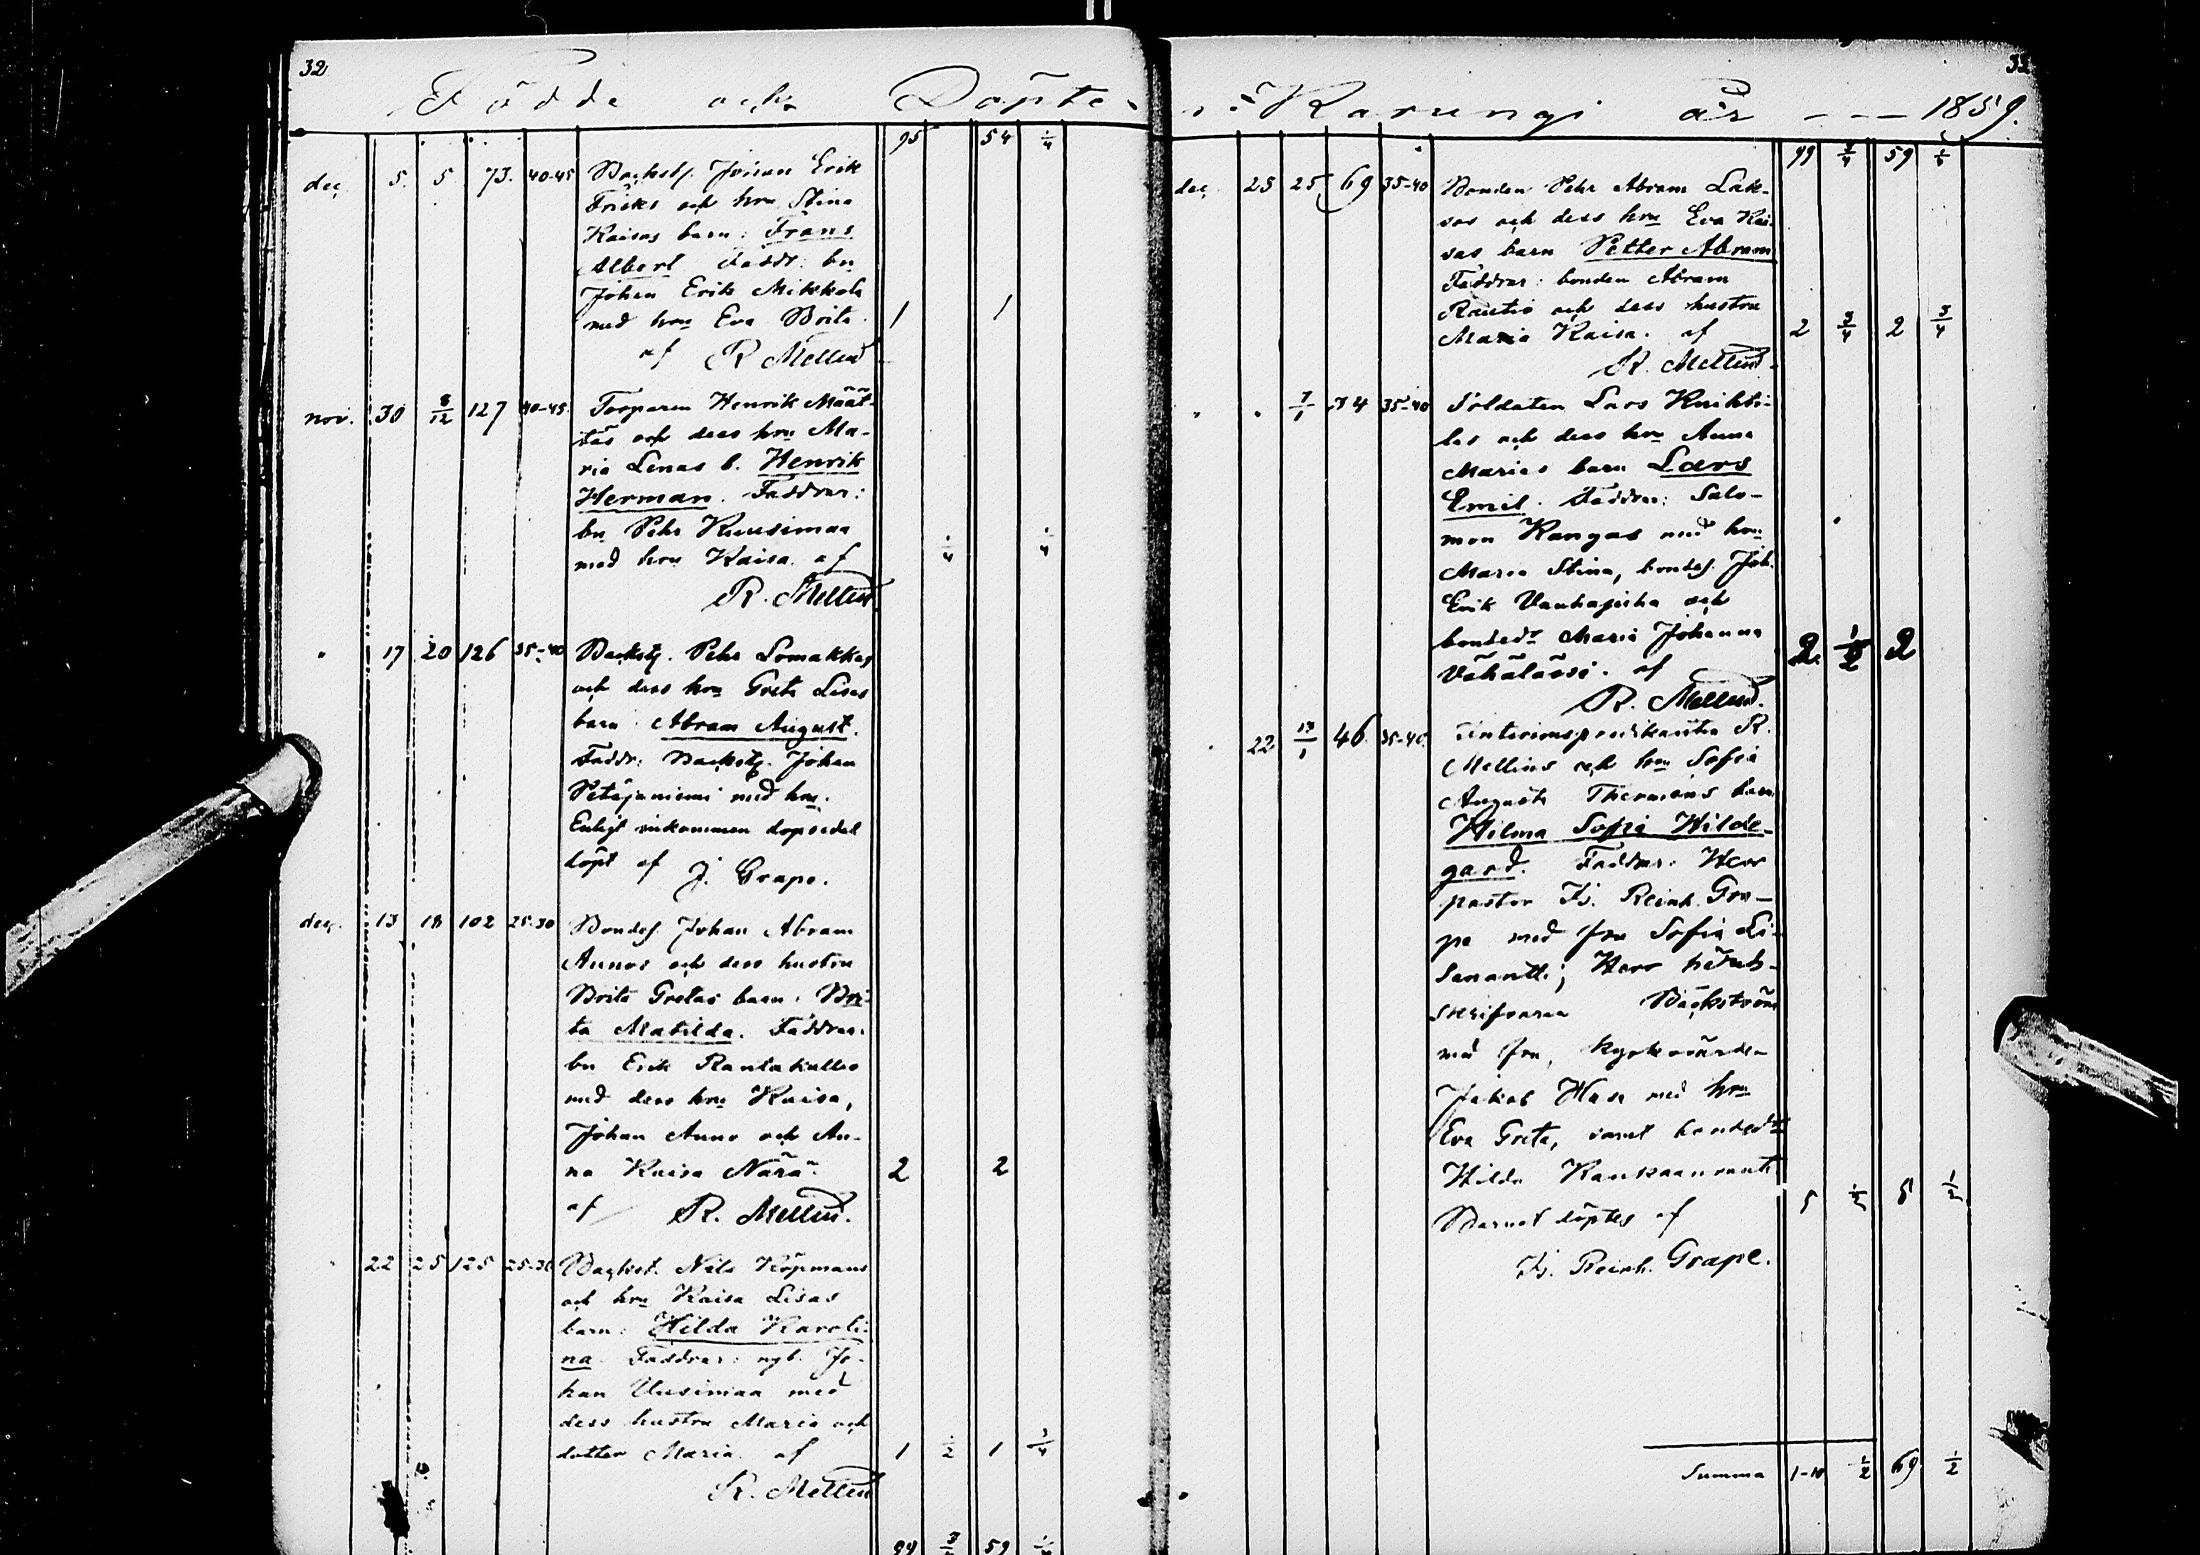 32
Födde och Döpte
95 54 1/4
dec. 5. 5. 73. 40-45 Backst. Johan Erik
Fricks och hru Stina
Kaisas barn: Frans
Albert Faddr: bn
Johan Erik Mikkola
med hru Eva Brita. 1 1
af R Mellin
nov. 30 8/12 127 40-45 Torparen Henrik Määt-
täs och dess hru Ma-
ria Lenas b. Henrik
Herman. Faddrar:
bn Pehr Kuusimaa
med hru Kaisa. af 1/4 1/4
R. Mellin
" 17 20 126 35-40 Backstg. Pehr Lomakkas
och dess hru Greta Lisas
barn Abram August.
Faddr: Backstg. Johan
Petäjäniemi med hru.
Enligt inkommen dopsedel
döpt af J. Grape.
dec. 13 18 102 25-30 Bondes. Johan Abram
Aunos och dess hustru
Brita Gretas barn: Bri-
ta Matilda. Faddrar:
bn Erik Rantakallio
med dess hru Kaisa,
Johan Auno och An-
na Kaisa Närä. 2 2
af R. Mellin.
22 25 125 25-30 Backst. Nils Köpmans
och hru Kaisa Lisas
barn: Hilda Karoli-
na. Faddrar: nyb. Jo-
han Uusimaa med
dess hustru Maria och
dotter Maria. af 1 1/2 1 3/4
R. Mellin
99 3/4 59 1/4
33
i Karungi år --- 1859.
99 3/4 59 1/4
dec. 25 25 69 35-40 Bonden Pehr Abram Lak-
sos och dess hru Eva Kai-
sas barn Petter Abram
Faddrar: bonden Abram
Rautio och dess hustru
Maria Kaisa. af 2 3/4 2 3/4
R. Mellin.
" " 7/1 74 35-40 Soldaten Lars Knihti-
las och dess hru Anna
Marias barn Lars
Emil. Faddrar: Salo-
mon Kangas med hru
Maria Stina, bondes. Joh.
Erik Vanhapiha och
bondedr Maria Johanna
Vähälassi. af 2 1/2 2
R. Mellin.
22 13/1 46 35-40 Interimspredikanten R.
Mellins och hru Sofia
Augusta Thermæns barn
Hilma Sofia Hilde-
gard. Faddrar: Herr
pastor Is. Reinh. Gra-
pe med fru Sofia Li-
sanantti; Herr härads-
skrifvaren Bäckström
med fru, kyrkovärden
Jakob Hase med hru
Eva Greta, samt bondedr
Hilda Kaukaanranta
5 1/2 5 1/2
Barnet döptes af
Is. Reinh. Grape.
Summa 1/2 69 1/2